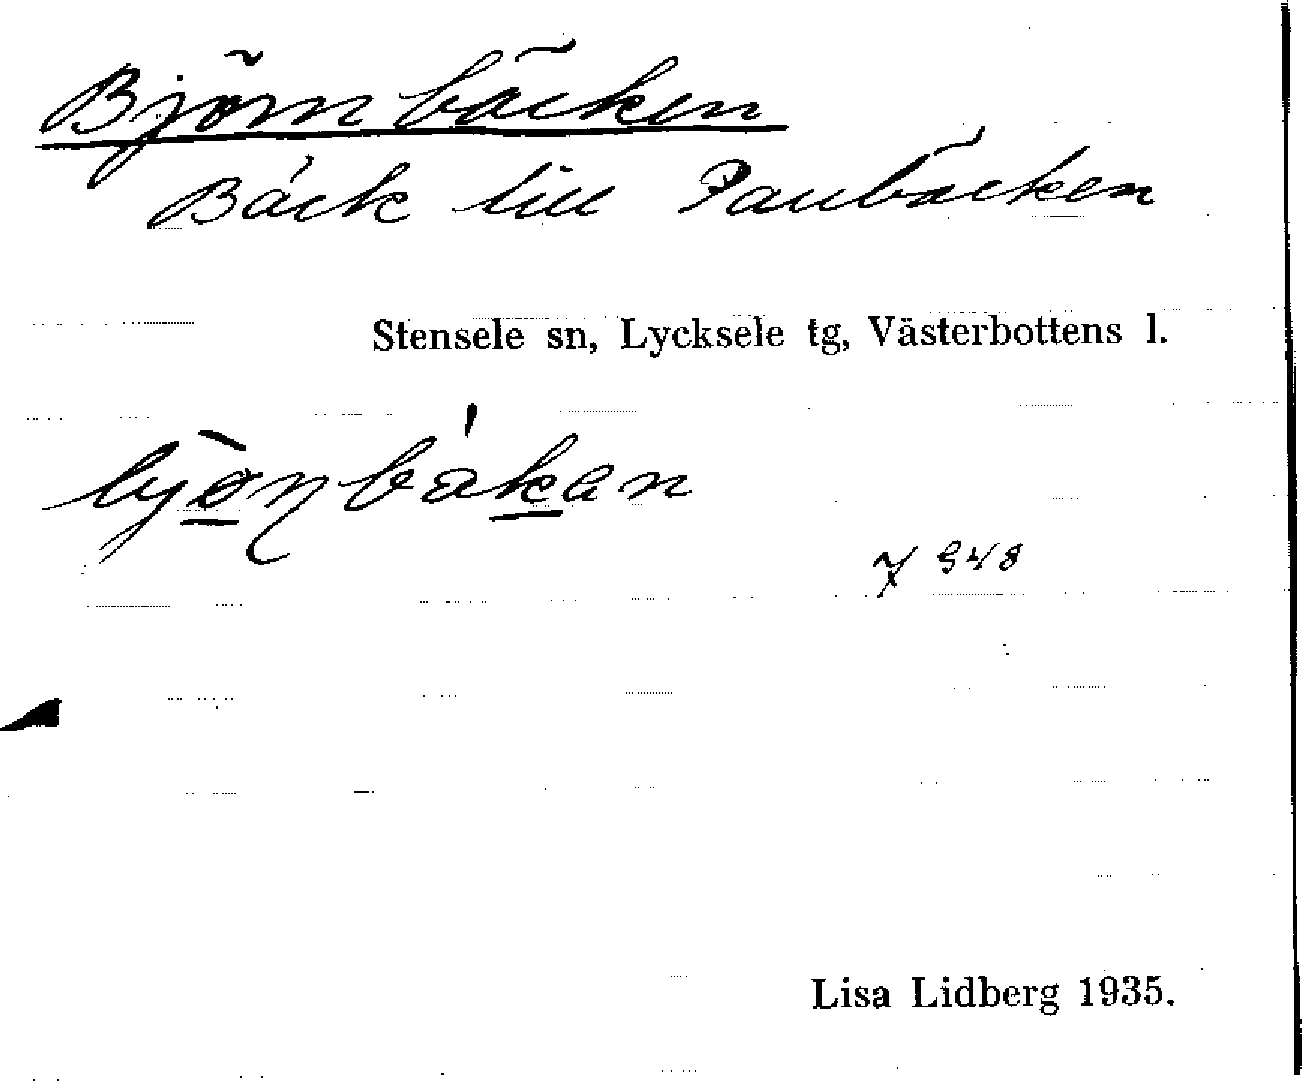 Björnbäcken
Bäck till Paubäcken
Stensele sn, Lycksele tg, Västerbottens l.
bjöɳbäkan
7 948
Lisa Lidberg 1935.